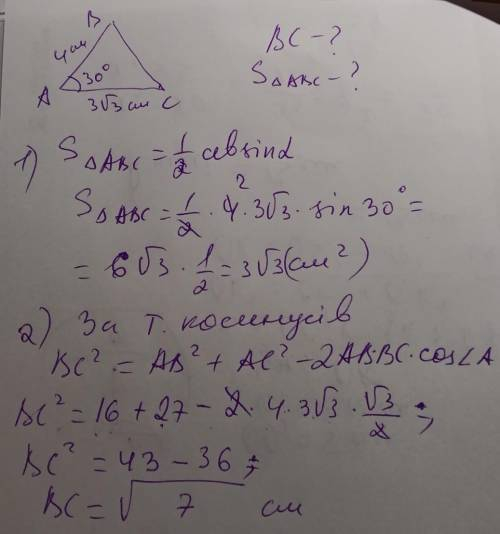 B
4 см
BC - ?
S△ABC - ?
A 30°
3√3 см C
1) S△ABC = 1/2 ab sinα
S△ABC = 1/2 · 4² · 3√3 · sin 30° =
= 6√3 · 1/2 = 3√3 (см²)
2) За т. косинусів
BC² = AB² + AC² - 2AB·BC·cos∠A
BC² = 16 + 27 - 2 · 4 · 3√3 · √3/2 ;
BC² = 43 - 36 ;
BC = √7 см